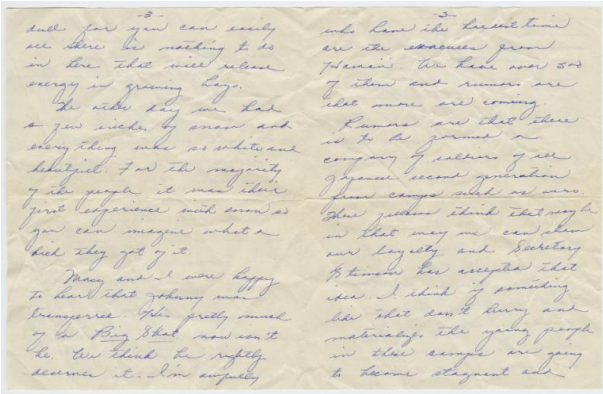 -3-
dull for you can easily
see there is nothing to do
in here that will release
energy in growing boys.
The other day we had
a few inches of snow and
everything was so white and
beautiful. For the majority
of the people it was their
first experience with snow so
you can imagine what a
kick they got of it.
Macy and I were happy
to hear that Johnny was
transferred. He's pretty much
of a Big Shot now isn't
he. We think he rightly
deserves it. I'm awfully
-5-
who have the hardest time
are the evacuees from
Hawaii. We have over 500
of them and rumors are
that more are coming
Rumors are that there
is to be formed a
company of soldiers of
Japanese second generation
from camps such as ours.
These think that maybe
in that way we can show
our loyalty and Secretary
Stimson has accepted that
idea. I think if something
like that don't hurry and
materialize the young people
in these camps are going
to become stagnant and